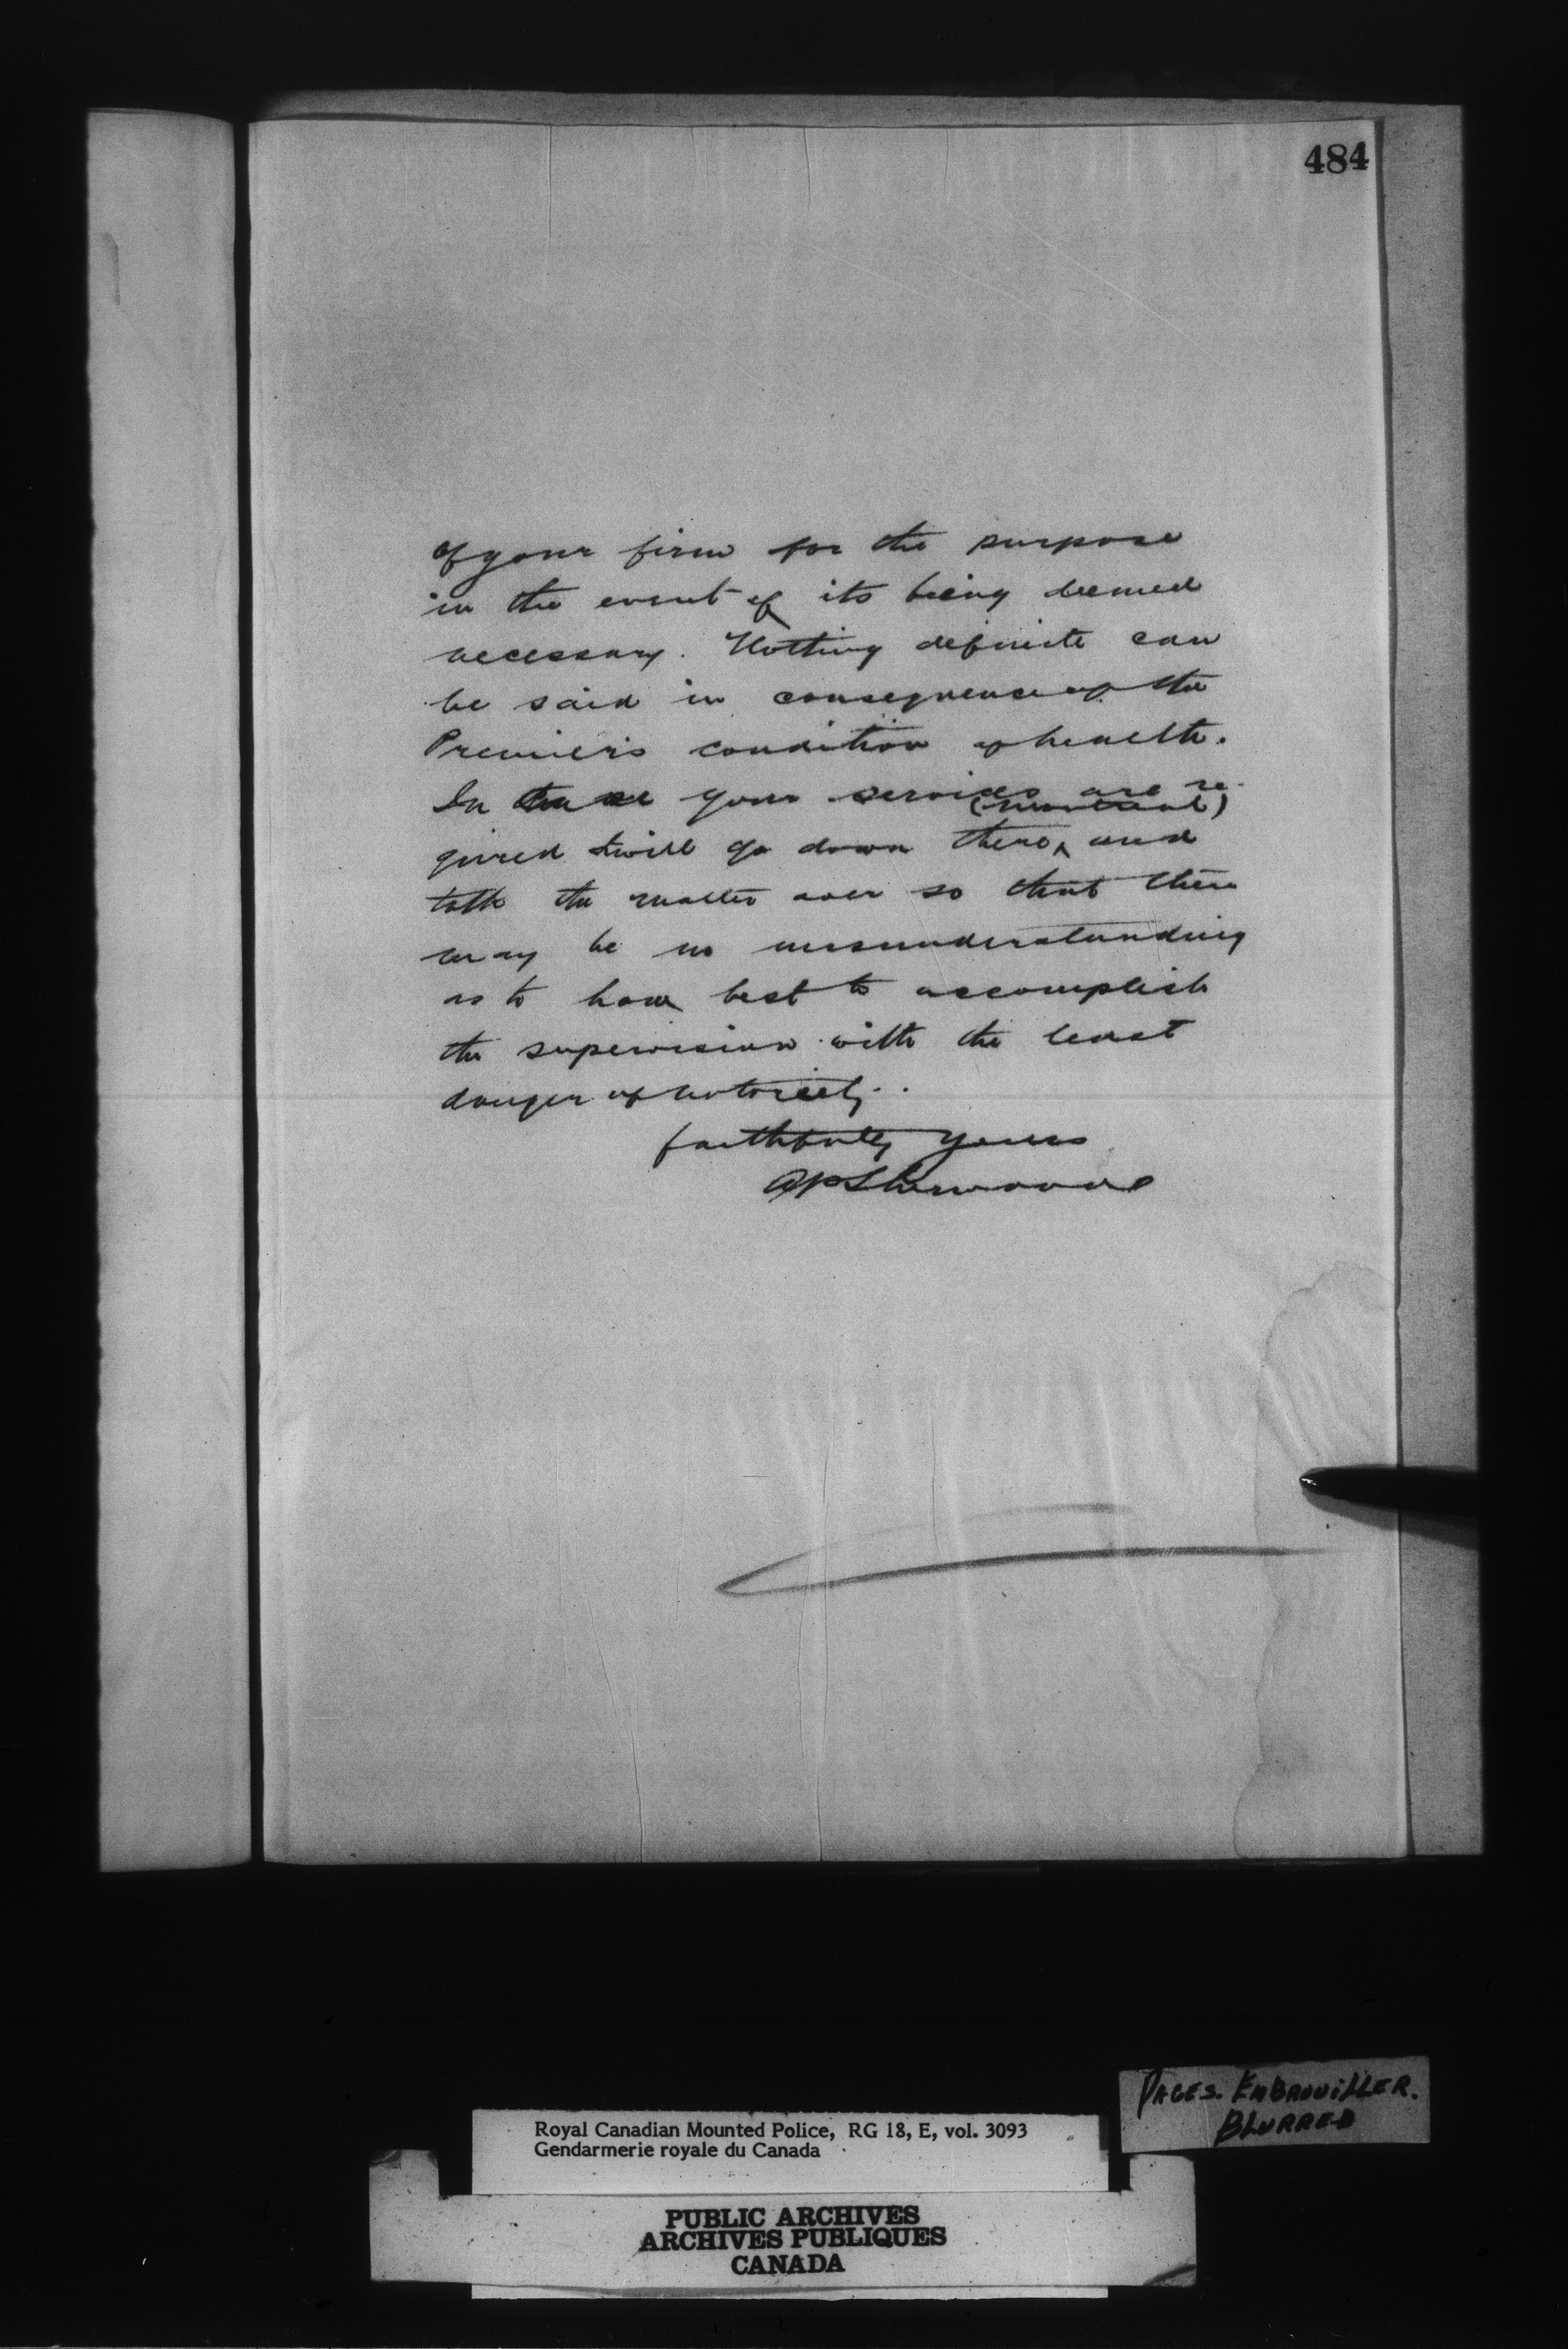 484
of your firm for the purpose
in the event of its being deemed
necessary. Nothing definite can
be said in consequence of the
Premier's condition of health.
In case your services are re-
(Montreal)
quired I will go down there, and
talk the matter over so that there
may be no misunderstanding
as to how best to accomplish
the supervision with the least
danger of notoriety.
faithfully yours
APSherwood
PAGES. EMBROUILLER.
BLURRED
Royal Canadian Mounted Police, RG 18, E, vol. 3093
Gendarmerie royale du Canada
PUBLIC ARCHIVES
ARCHIVES PUBLIQUES
CANADA